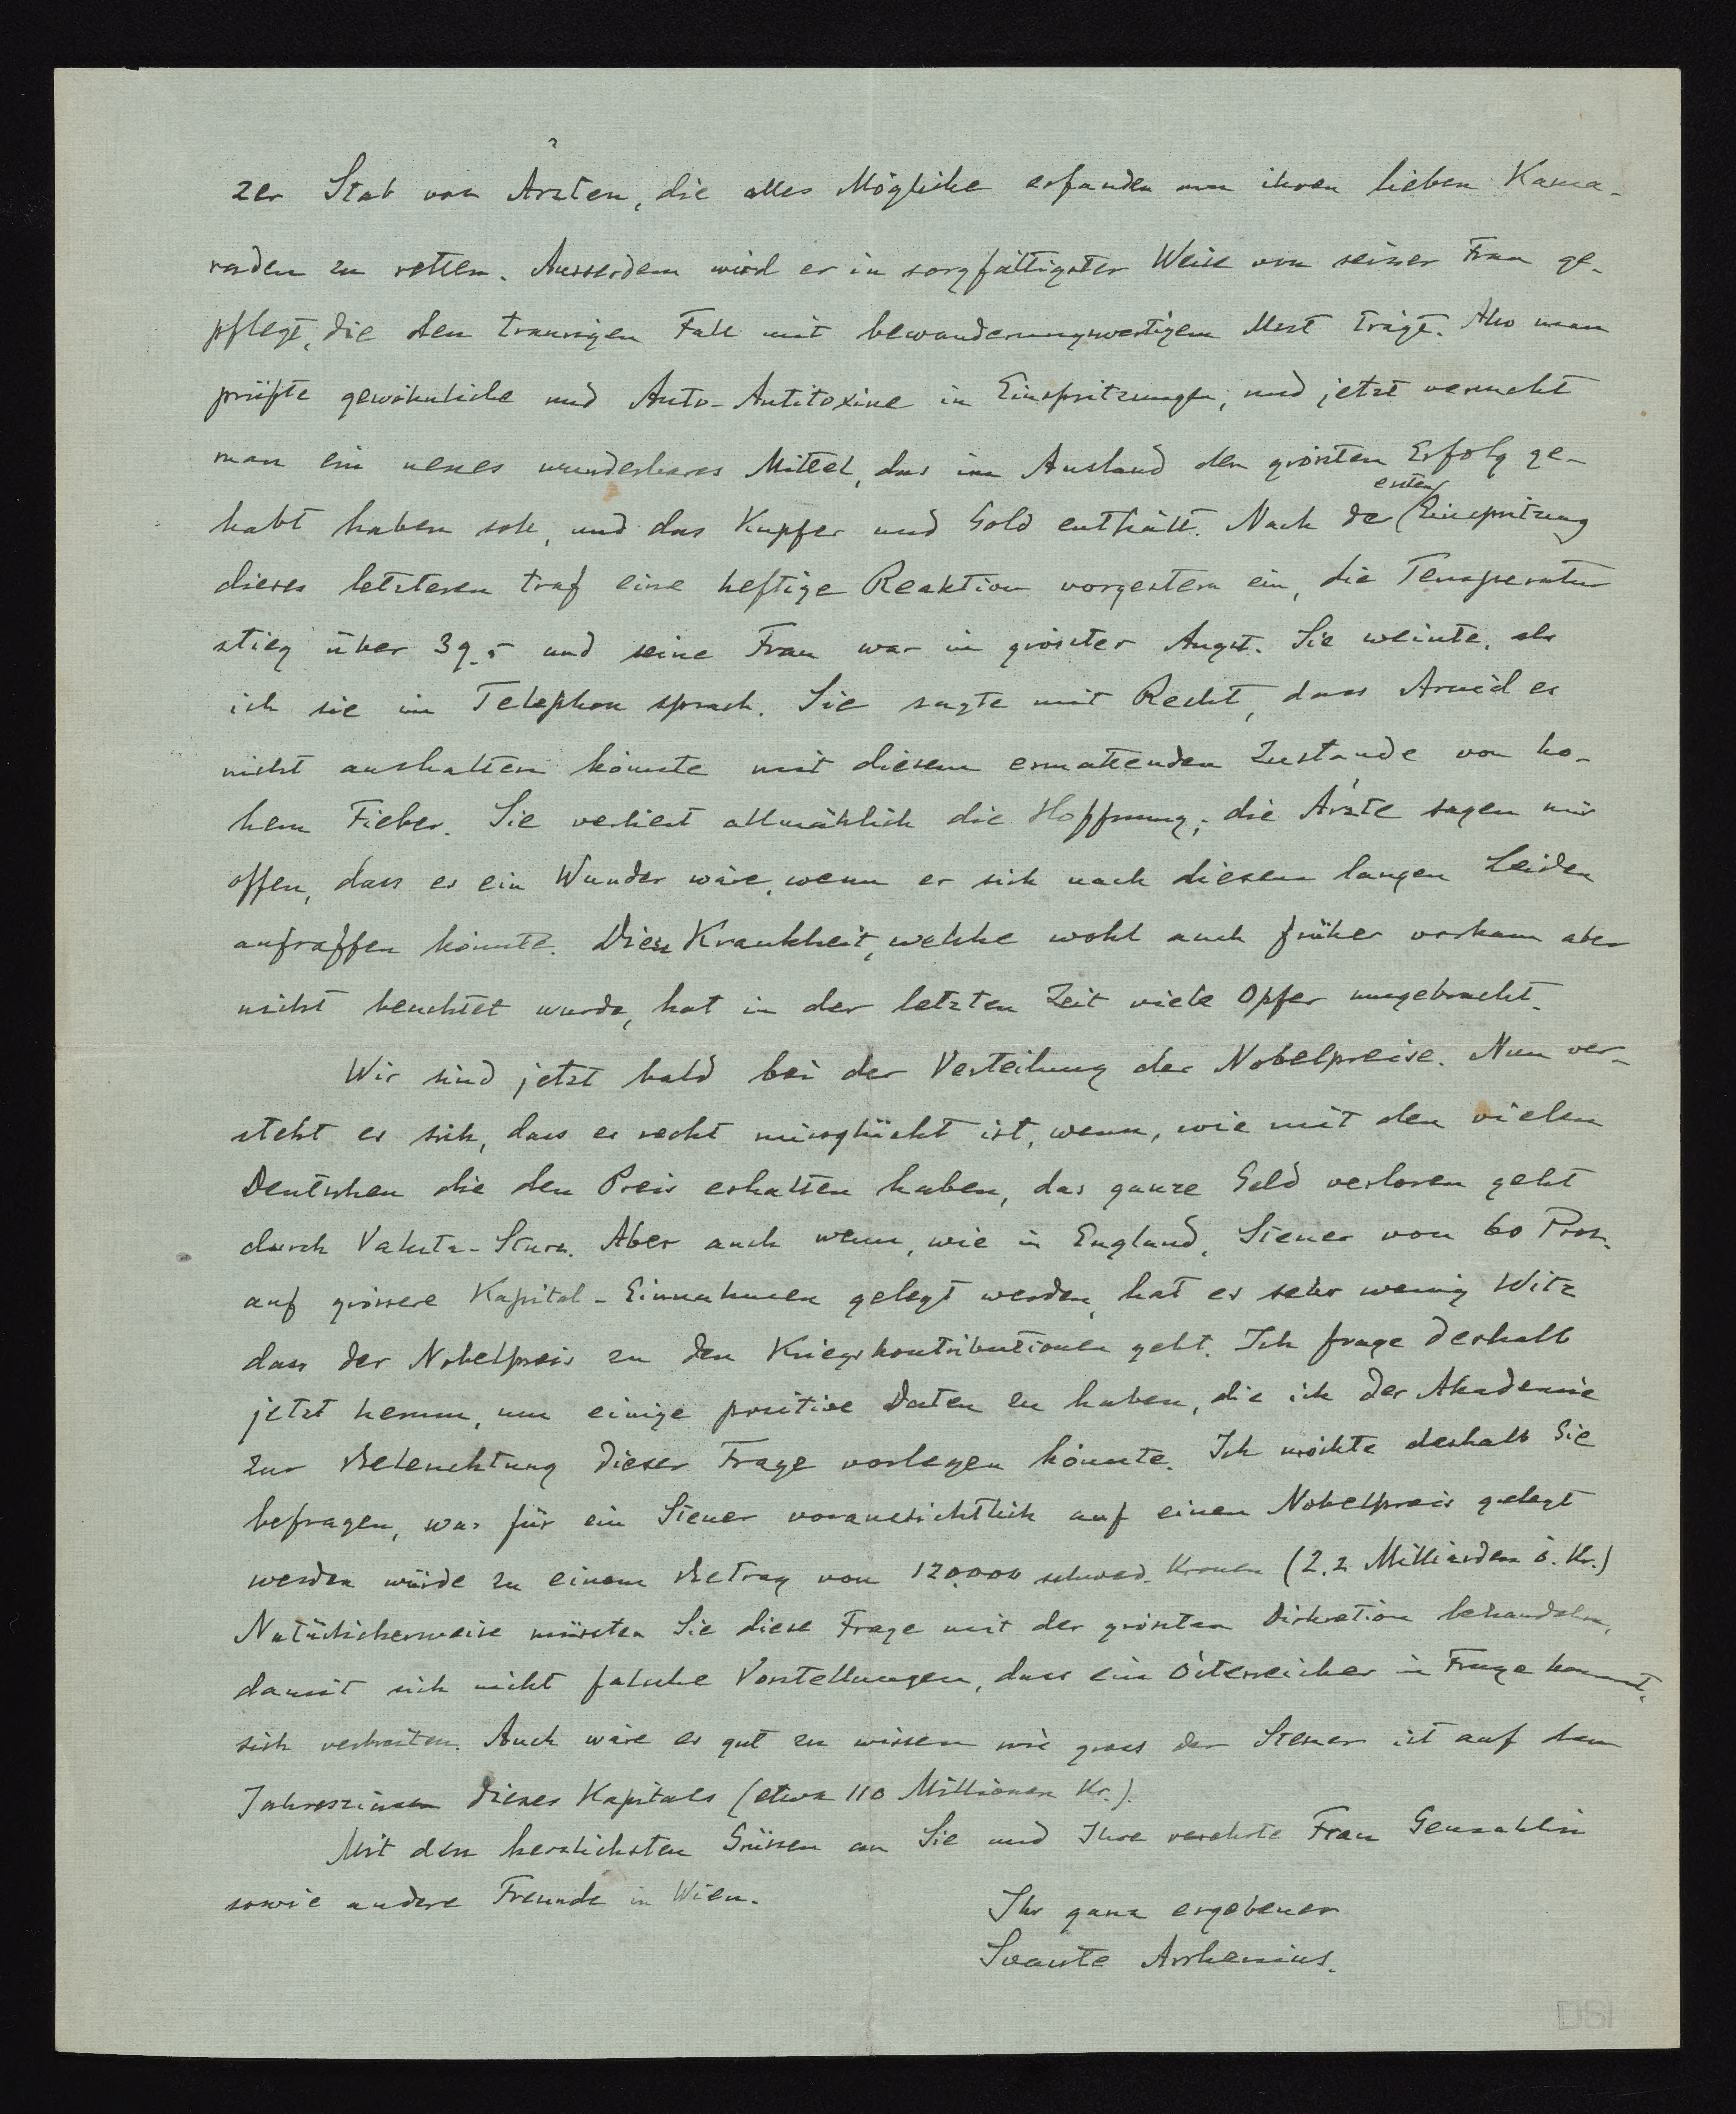 zer Stab von Ärzten, die alles Mögliche erfanden um ihren lieben Kama-
raden zu retten. Ausserdem wird er in sorgfältigster Weise von seiner Frau ge-
pflegt, die den traurigen Fall mit bewunderungswertigem Mut trägt. Also man
prüfte gewöhnliche und Auto-Antitoxine in Einspritzungen, und jetzt versucht
man ein neues wunderbares Mittel, das im Ausland den grössten Erfolg ge-
habt haben soll, und das Kupfer und Gold enthält. Nach der ersten Einspritzung
dieses letzteren traf eine heftige Reaktion vorgestern ein, die Temperatur
stieg über 39.5 und seine Frau war in grösster Angst. Sie weinte, als
ich sie im Telephon sprach. Sie sagte mit Recht, dass Arvid es
nicht aushalten könnte mit diesem ermattenden Zustande von ho-
hem Fieber. Sie verliert allmählich die Hoffnung; die Ärzte sagen mir
offen, dass es ein Wunder wäre, wenn er sich nach diesem langen Leiden
aufraffen könnte. Diese Krankheit, welche wohl auch früher vorkam aber
nicht beachtet wurde, hat in der letzten Zeit viele Opfer umgebracht.
Wir sind jetzt bald bei der Verteilung der Nobelpreise. Nun ver-
steht es sich, dass es recht missglückt ist, wenn, wie mit den vielen
Deutschen die den Preis erhalten haben, das ganze Geld verloren geht
durch Valuta-Sturz. Aber auch wenn, wie in England, Steuer von 60 Proz.
auf grössere Kapital-Einnahmen gelegt werden, hat es sehr wenig Witz
dass der Nobelpreis zu den Kriegskontributionen geht. Ich frage deshalb
jetzt herum, um einige positive Daten zu haben, die ich der Akademie
zur Beleuchtung dieser Frage vorlegen könnte. Ich möchte deshalb Sie
befragen, was für ein Steuer voraussichtlich auf einen Nobelpreis gelegt
werden würde zu einem Betrag von 120.000 schwed. Kronen (2.2 Milliarden ö. Kr.)
Natürlicherweise müssten Sie diese Frage mit der grössten Diskretion behandeln,
damit sich nicht falsche Vorstellungen, dass ein Österreicher in Frage kommt,
sich verbreiten. Auch wäre es gut zu wissen wie gross der Steuer ist auf dem
Jahreszinsen dieses Kapitals (etwa 110 Millionen Kr.).
Mit den herzlichsten Grüssen an Sie und Ihre verehrte Frau Gemahlin
sowie andere Freunde in Wien.
Ihr ganz ergebener
Svante Arrhenius.